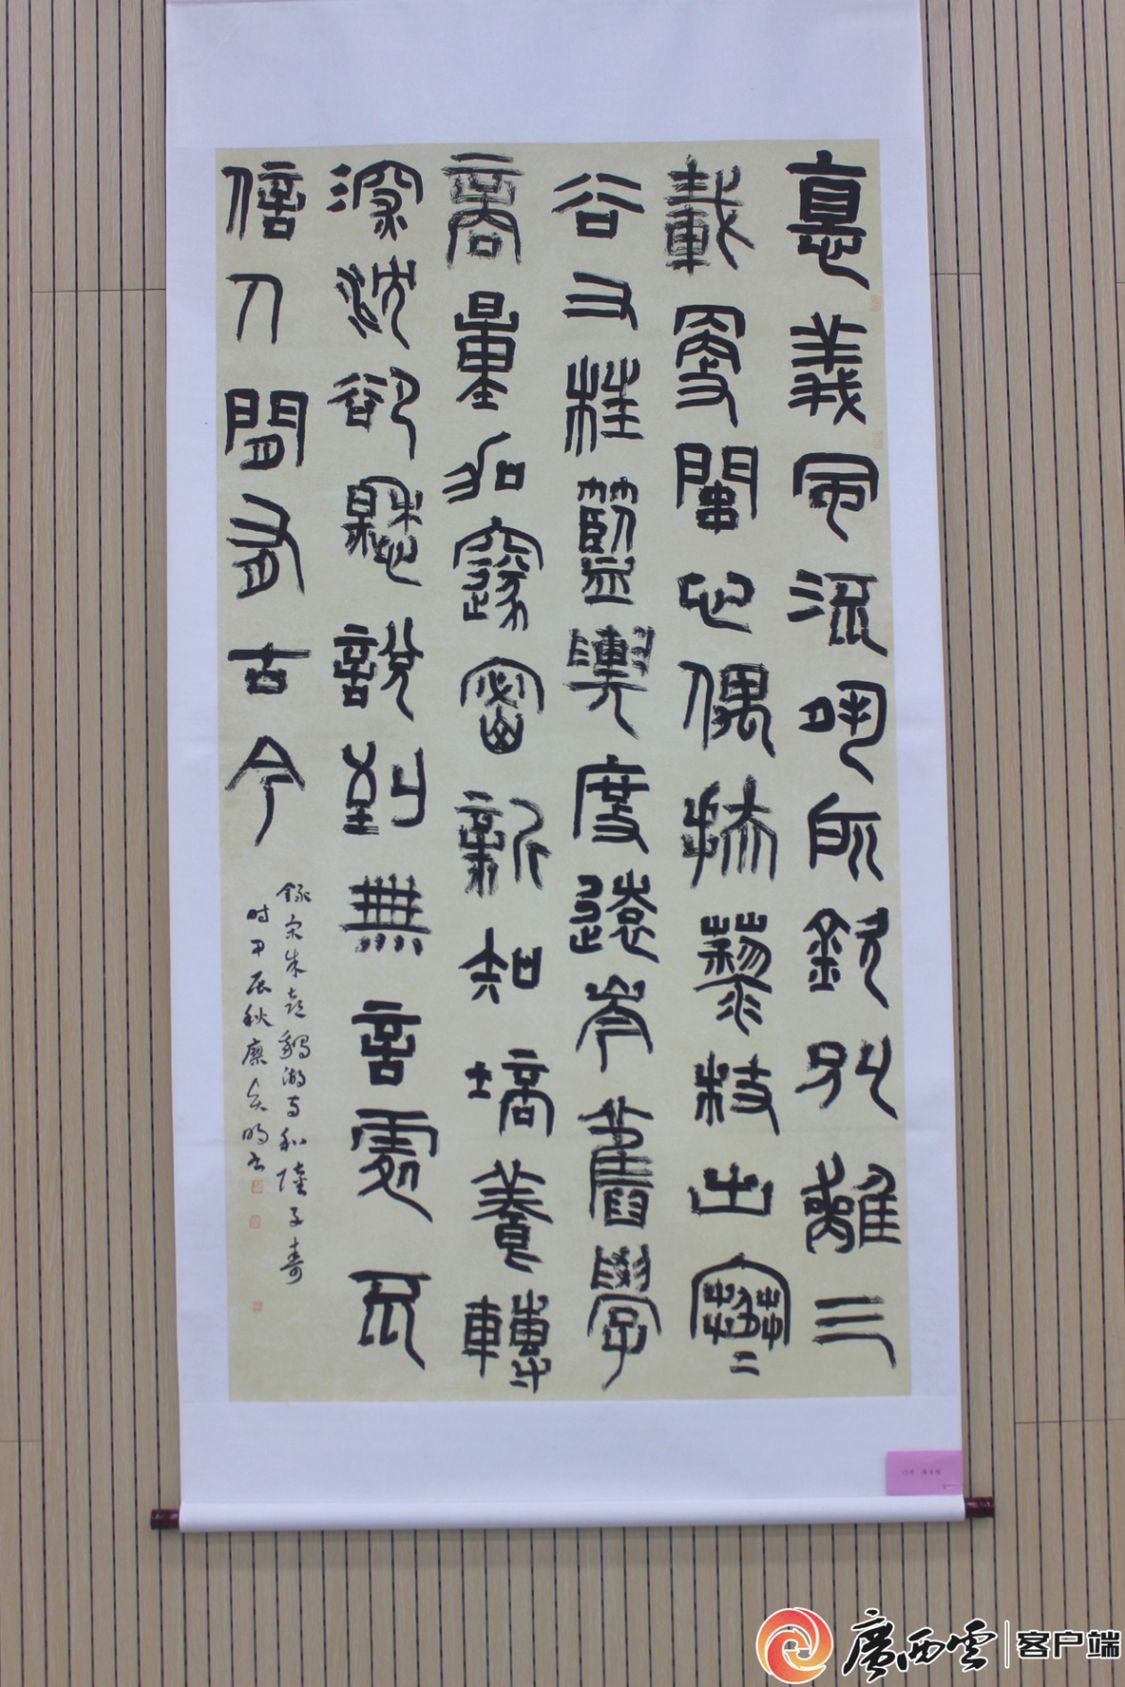 悳義風流夙所欽別離三
載更關心偶扶藜杖出寒
谷又枉籃輿度遠岑舊學
商量加邃密新知培養轉
深沈卻愁說到無言處不
信人間有古今
錄宋朱熹鵝湖寺和陸子壽
时甲辰秋廉
廣西雲 客户端